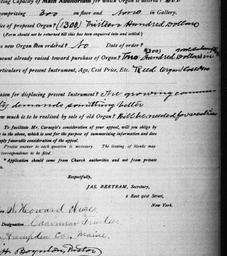 ating Capacity of Main Auditorium for which Organ is
omprising 200 on floor and none in Gallery.
ice of proposed Organ? (1300) Thirteen Hundred Dollars
(Form should not be returned till this has been enquired into and settled)
new Organ Been ordered? No Date of order?
ount already raised toward purchase of Organ? Two Hundred Dollars
rticulars of present Instrument, Age, Cost Price, Etc. Reed Organ
ason for displacing present Instrument? The growing
demands something better
ow much is to be realized by sale of old Organ?
To facilitate Mr. Carnegie's consideration of your appeal, will you oblige by
in the above, which is sent for the purpose of summarizing information and does
mply favorable consideration of the appeal.
Precise answer to each question is necessary. The issuing of blanks may
orrespondence to be filed.
* Application should come from Church authorities and not from private
Respectfully,
JAS. BERTRAM, Secretary,
2 East 91st Street,
New York.
Howard
Designation Chairman Trustees
Hampden Cor. Maine.
Boynton Pastor